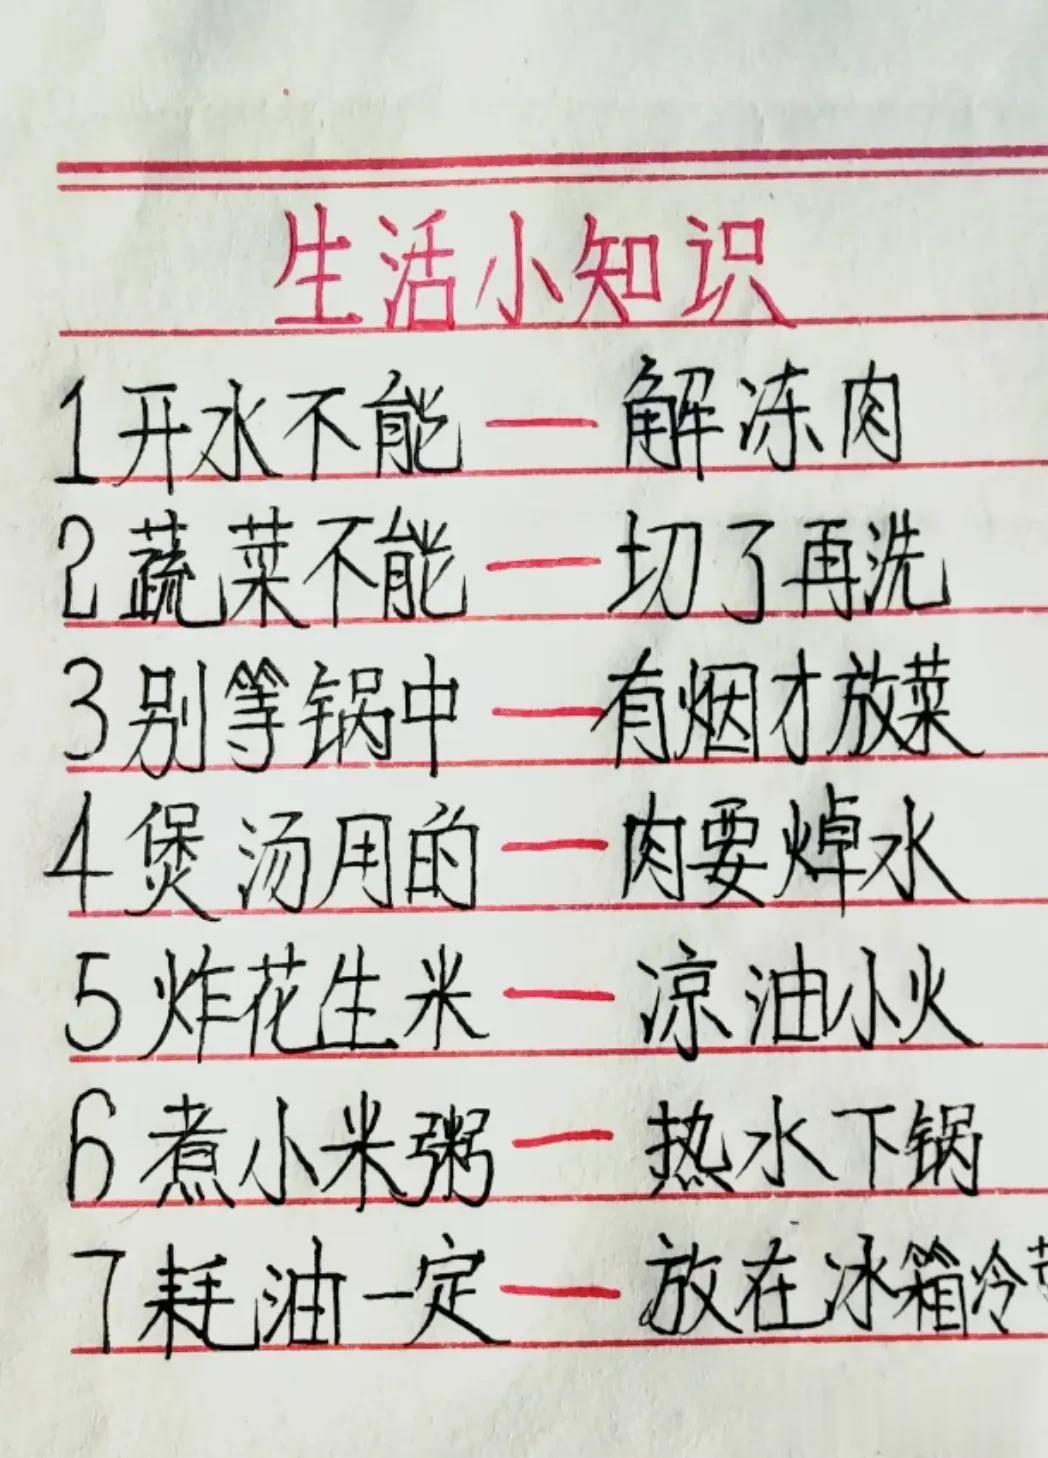 生活小知识
1开水不能—解冻肉
2蔬菜不能—切了再洗
3别等锅中—有烟才放菜
4煲汤用的—肉要焯水
5炸花生米—凉油小火
6煮小米粥—热水下锅
7耗油一定—放在冰箱冷